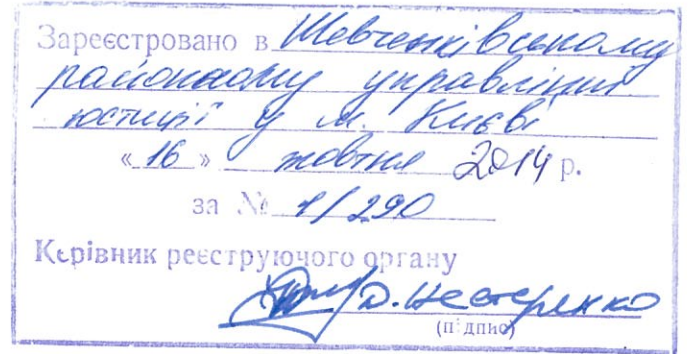 Зареєстровано в Шевченківському
районному управлінні
юстиції у м. Києві
« 16 » жовтня 2014 р.
за № 1/290
Керівник реєструючого органу
Д. Нестеренко
(підпис)